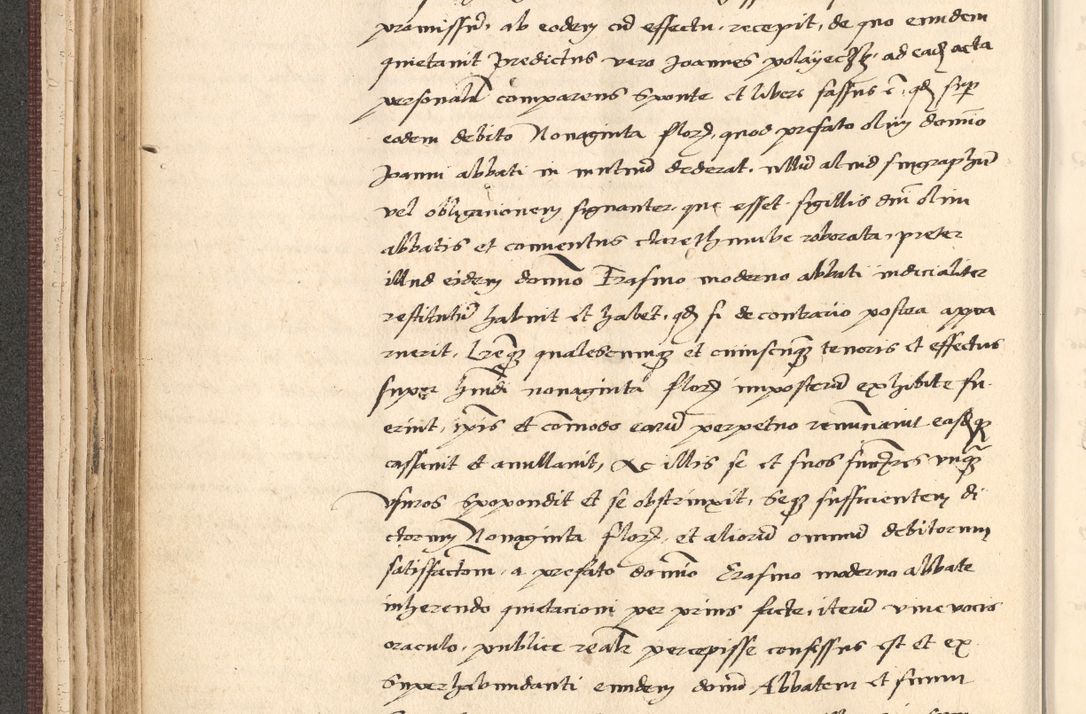 promissum, ab eodem cum effectu, recepit, de quo eundem
quietavit Predictus vero Joannes polayeczsky, ad eadem acta
personaliter comparens Sponte et libere fassus est, quod super
eodem debito Nonaginta florenorum, quos prefato olim domino
Joanni abbati in mutuum dederat, nullum aliud singraphum
vel obligacionem signanter, que esset sigillis domini olim
abbatis et conventus clarethumbe roborata, preter
illud eidem domino Erasmo moderno abbati iudicialiter
restitutum habuit et habet, quod si de contrario postea appa
ruerit, Literasque qualescumque et cuiuscumque tenoris et effectus
super huiusmodi nonaginta florenorum imposterum exhibite fu
erint, ipsis et commodo earum perpetuo renunciavit easdemque
cassavit et annullavit, Ac illis se et suos successores unquam
usuros spopondit et se obstrinxit, Seque sufficientem di
ctorum Nonaginta florenorum, et aliorum omnium debitorum
satisfactionem, a prefato domino Erasmo moderno abbate
inherendo quietacioni per prius facte, iterum vive vocis
oraculo, publice realiter percepisse confessus est et ex
Superhabundanti eundem dominum Abbatem et suum